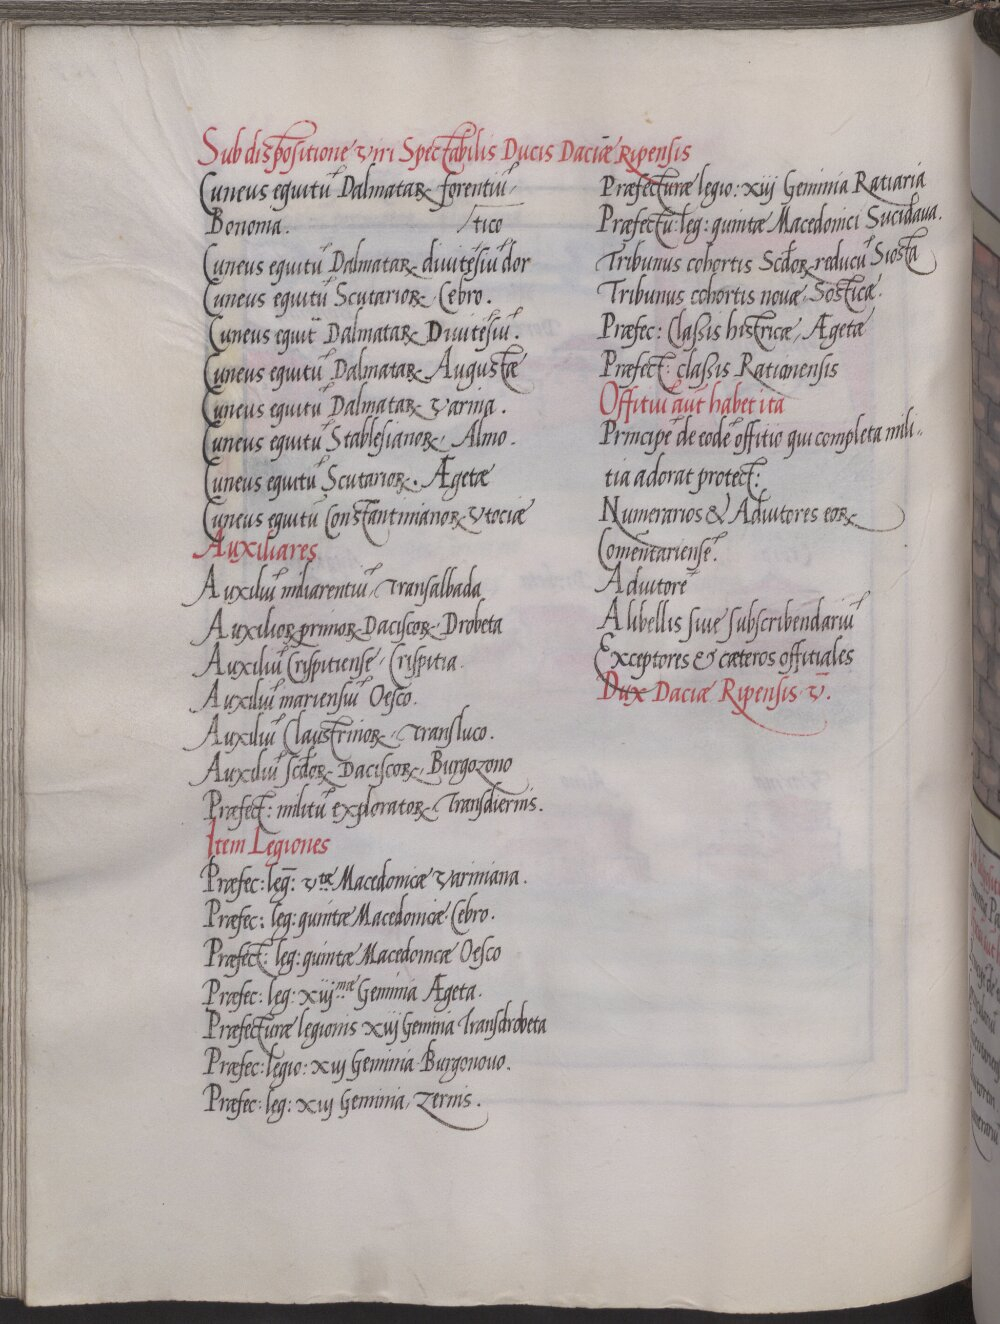 Sub dispositione viri Spectabilis Ducis Daciæ Ripensis
Cuneus equitū Dalmataꝝ forentiū
Bonoma. /tico
Cuneus equitū Dalmataꝝ divitēsiū dor
Cuneus equitū Scutarioꝝ Cebro.
Cuneus equit̄ Dalmataꝝ Divitēsiū.
Cuneus equitū Dalmataꝝ Augustæ
Cuneus equitū Dalmataꝝ varina.
Cuneus equitū Stablesianoꝝ Almo.
Cuneus equitū Scutarioꝝ. Ægetæ
Cuneus equitū Constantinianoꝝ Vtociæ
Auxiliares
Auxiliū miliarentiū Transalbada
Auxilioꝝ primoꝝ Daciscoꝝ Drobeta
Auxiliū Crispitiense Crispitia.
Auxiliū mariensiū Oesco.
Auxiliū Claustrinoꝝ Transluco.
Auxiliū scd̄oꝝ Daciscoꝝ Burgozono
Præfect: militū exploratoꝝ Transdiernis.
Item Legiones
Præfec: leg̅: vtæ Macedonicæ variniana.
Præfec: leg: quintæ Macedonicæ Cebro.
Præfect: leg: quintæ Macedonicæ Oesco
Præfec: leg: xiijmæ Geminia Ægeta.
Præfecturæ legionis xiij Gemina Transdrobeta
Præfec: legio: xiij Geminia Burgonouo.
Præfec: leg: xiij Geminia, Zernis.
Præfecturæ legio: xiij Geminia Ratiaria
Præfectu: leg: quintæ Macedonici Sucidaua.
Tribunus cohortis Scd̄oꝝ reducū Siosta
Tribunus cohortis novæ Sosticæ.
Præfec: Classis histricæ, Ægetæ
Præfect: classis Rationensis
Offitiū aūt habet ita
Principē de eodē offitio qui completa mili..
tia adorat protect:
Numerarios & Adiutores eoꝝ
Comentariensē.
Adiutorē
A libellis siue subscribendariū
Exceptores & cæteros offitiales
Dux Daciæ Ripensis v̄.